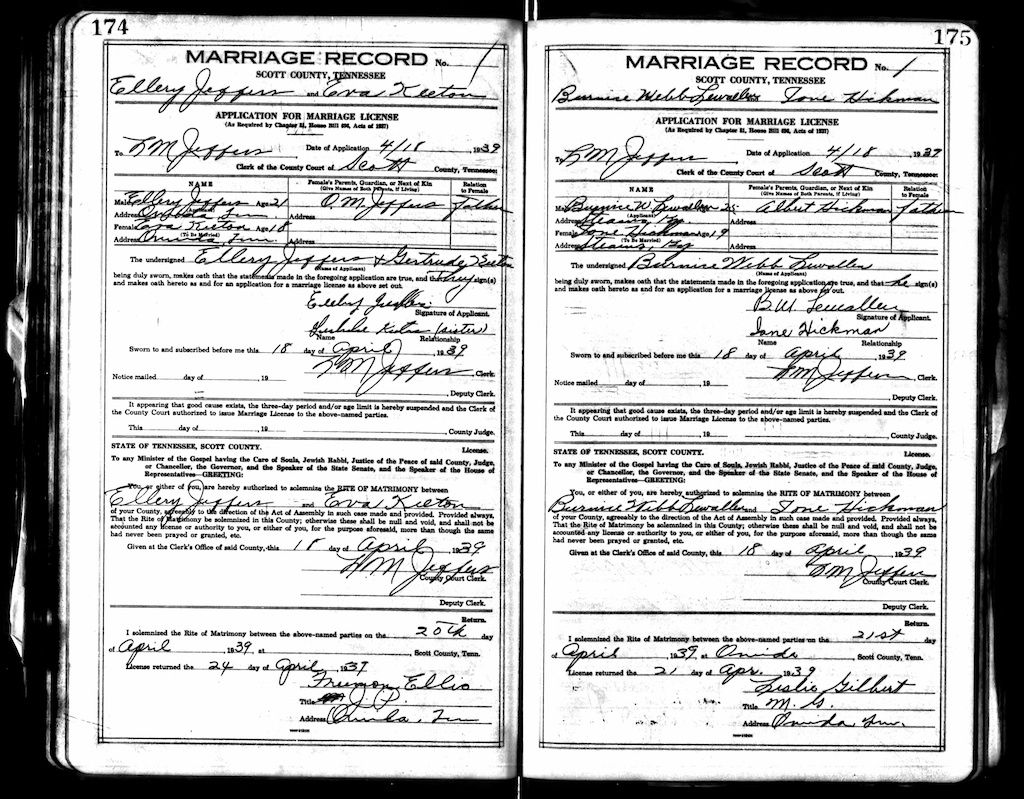 174
MARRIAGE RECORD No. 1
SCOTT COUNTY, TENNESSEE
Ellery Jeffers and Eva Keeton
APPLICATION FOR MARRIAGE LICENSE
(As Required by Chapter 81, House Bill 696, Acts of 1937)
To L M Jeffers Date of Application 4/18, 1939
Clerk of the County Court of Scott County, Tennessee:
NAME Female's Parents, Guardian, or Next of Kin Relation
(Give Names of Both Parents, if Living) to Female
Male Ellery Jeffers Age 21 O. M. Jeffers Father
Address Oneida Tenn. (Applicant)
Female Eva Keeton Age 18
Address Oneida Tenn (To Be Married)
The undersigned Ellery Jeffers & Gertrude Keeton
(Name of Applicant)
being duly sworn, makes oath that the statements made in the foregoing application are true, and that they sign(s)
and makes oath hereto as and for an application for a marriage license as above set out.
Ellery Jeffers
Signature of Applicant.
(sister)
Name Relationship
Sworn to and subscribed before me this 18 day of April, 1939
L M Jeffers, Clerk.
Notice mailed day of , 19
, Deputy Clerk.
It appearing that good cause exists, the three-day period and/or age limit is hereby suspended and the Clerk of
the County Court authorized to issue Marriage License to the above-named parties.
This day of , 19 , County Judge.
STATE OF TENNESSEE, SCOTT COUNTY. License.
To any Minister of the Gospel having the Care of Souls, Jewish Rabbi, Justice of the Peace of said County, Judge,
or Chancellor, the Governor, and the Speaker of the State Senate, and the Speaker of the House of
Representatives—GREETING:
You, or either of you, are hereby authorized to solemnize the RITE OF MATRIMONY between
Ellery Jeffers and Eva Keeton
of your County, agreeably to the direction of the Act of Assembly in such case made and provided. Provided always,
That the Rite of Matrimony be solemnized in this County; otherwise these shall be null and void, and shall not be
accounted any license or authority to you, or either of you, for the purpose aforesaid, more than though the same
had never been prayed or granted, etc.
Given at the Clerk's Office of said County, this 18 day of April, 1939
L M Jeffers
County Court Clerk.
Deputy Clerk.
Return.
I solemnized the Rite of Matrimony between the above-named parties on the 20th day
of April, 1939, at , Scott County, Tenn.
License returned the 24 day of April, 1939
Freeman Ellis
Title J. P.
Address Oneida, Tenn
175
MARRIAGE RECORD No. 1
SCOTT COUNTY, TENNESSEE
Burnise Webb Lewallen and Ione Hickman
APPLICATION FOR MARRIAGE LICENSE
(As Required by Chapter 81, House Bill 696, Acts of 1937)
To L M Jeffers Date of Application 4/18, 1939
Clerk of the County Court of Scott County, Tennessee:
NAME Female's Parents, Guardian, or Next of Kin Relation
(Give Names of Both Parents, if Living) to Female
Male Burnise W. Lewallen 25 Albert Hickman Father
Address Stearns, Ky. (Applicant)
Female Ione Hickman Age 19
Address Stearns, Ky (To Be Married)
The undersigned Burnise Webb Lewallen
(Name of Applicant)
being duly sworn, makes oath that the statements made in the foregoing application are true, and that he sign(s)
and makes oath hereto as and for an application for a marriage license as above set out.
B. W. Lewallen
Signature of Applicant.
Ione Hickman
Name Relationship
Sworn to and subscribed before me this 18 day of April, 1939
L M Jeffers, Clerk.
Notice mailed day of , 19
, Deputy Clerk.
It appearing that good cause exists, the three-day period and/or age limit is hereby suspended and the Clerk of
the County Court authorized to issue Marriage License to the above-named parties.
This day of , 19 , County Judge.
STATE OF TENNESSEE, SCOTT COUNTY. License.
To any Minister of the Gospel having the Care of Souls, Jewish Rabbi, Justice of the Peace of said County, Judge,
or Chancellor, the Governor, and the Speaker of the State Senate, and the Speaker of the House of
Representatives—GREETING:
You, or either of you, are hereby authorized to solemnize the RITE OF MATRIMONY between
Burnise Webb Lewallen and Ione Hickman
of your County, agreeably to the direction of the Act of Assembly in such case made and provided. Provided always,
That the Rite of Matrimony be solemnized in this County; otherwise these shall be null and void, and shall not be
accounted any license or authority to you, or either of you, for the purpose aforesaid, more than though the same
had never been prayed or granted, etc.
Given at the Clerk's Office of said County, this 18 day of April, 1939
L M Jeffers
County Court Clerk.
Deputy Clerk.
Return.
I solemnized the Rite of Matrimony between the above-named parties on the 21st day
of April, 1939, at Oneida, Scott County, Tenn.
License returned the 21 day of Apr., 1939
Leslie Gilbert
Title M. G.
Address Oneida, Tenn.